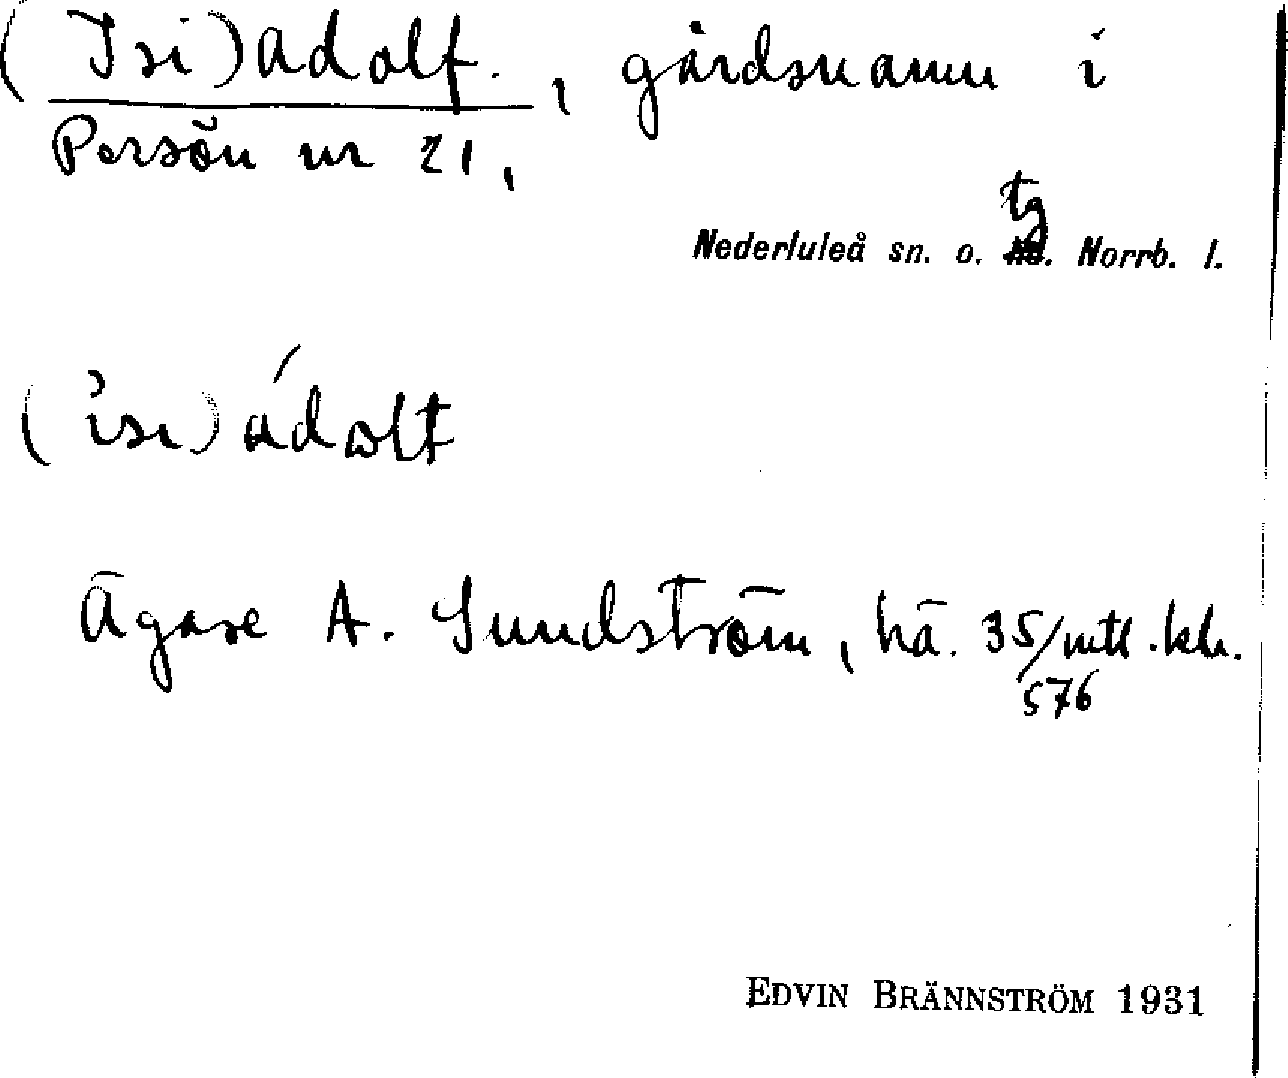 (Isi)adolf., gårdsnamn i
Persön nr 21,
tg
Nederluleå sn. o. Norrb. l.
(isi)ádolf
Ägare A. Sundström, hä. 35/576 mtl.
EDVIN BRÄNNSTRÖM 1931